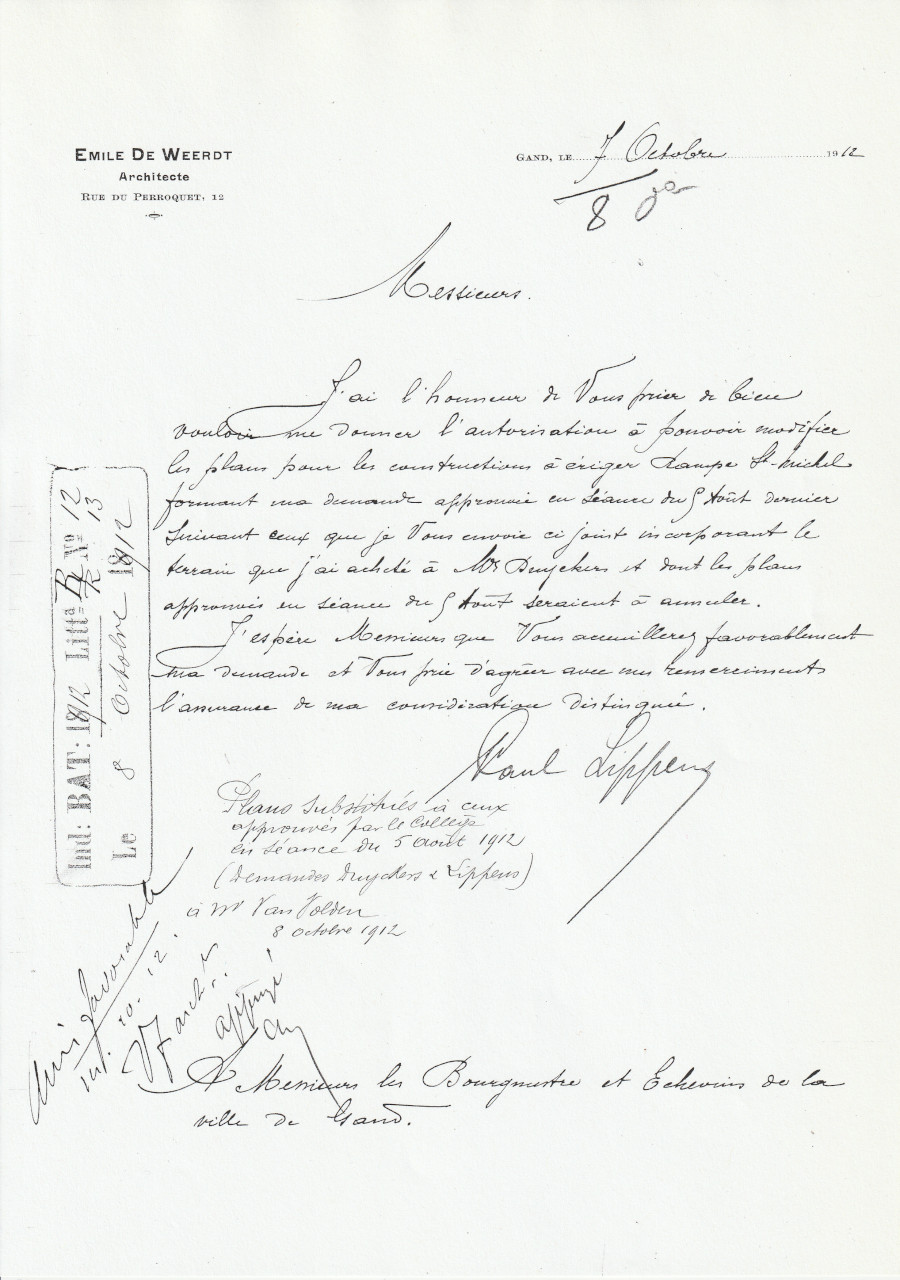 EMILE DE WEERDT
Architecte
RUE DU PERROQUET, 12
GAND, LE 7 Octobre 1912
8
Messieurs.
J'ai l'honneur de Vous prier de bien
vouloir me donner l'autorisation à pouvoir modifier
les plans pour les constructions à ériger Rampe St-Michel
formant ma demande approuvée en séance du 5 Août dernier
suivant ceux que je Vous envoie ci joint incorporant le
terrain que j'ai acheté à Mr Duyckers et dont les plans
approuvés en séance du 5 Août seraient à annuler.
J'espère Messieurs que Vous accueillerez favorablement
ma demande et Vous prie d'agréer avec mes remerciments
l'assurance de ma considération distinguée.
Paul Lippens
Ind: BAT: 1912 Litta R No 12
13
Le 8 Octobre 1912
Plans substitués à ceux
approuvés par le Collège
en séance du 5 août 1912
(Demandes Duyckers & Lippens)
à Mr Van Volden
8 octobre 1912
Avis favorable
10. 12.
A Messieurs les Bourgmestre et Echevins de la
ville de Gand.